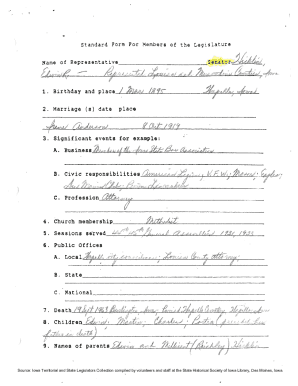 Standard Form For Members of the Legislature
Name of Representative Senator Hicklin
Edwin R. - Represented Louisa and Muscatine Counties, Iowa
1. Birthday and place 1 Mar 1895 Wapello, Iowa
2. Marriage (s) date place
Anderson 8 Oct 1919
3. Significant events for example:
A. Business Member of the Iowa State Bar Association
B. Civic responsibilities American Legion; V.F.W; Mason; Eagles;
C. Profession Attorney
4. Church membership Methodist
5. Sessions served General Assemblies 1931, 1933
6. Public Offices
A. Local Wapello city; Louisa County attorney;
B. State
C. National
7. Death 1963 Burlington, Iowa; Buried Wapello Cemetery, Wapello, Iowa
8. Children Edward; Martin; Charles;
father's death)
9. Names of parents Edwin and Millicent Hicklin
Source: Iowa Territorial and State Legislators Collection compiled by volunteers and staff at the State Historical Society of Iowa Library, Des Moines, Iowa.